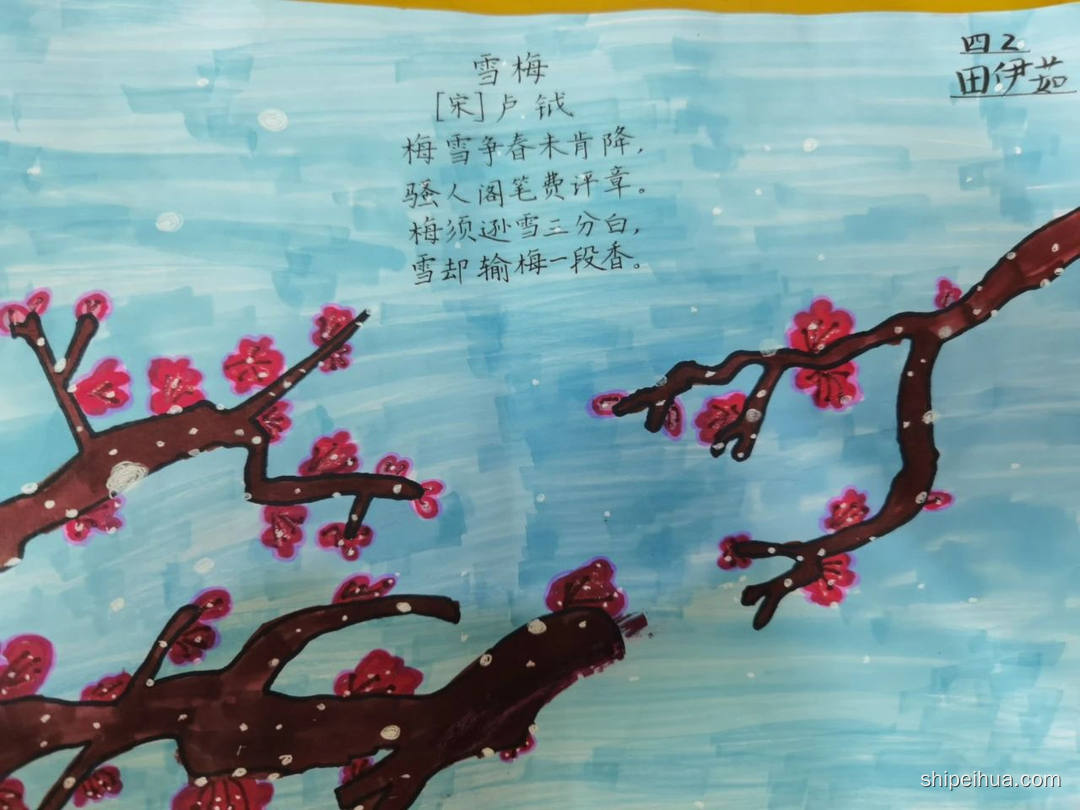 四2
田伊茹
雪梅
[宋]卢钺
梅雪争春未肯降,
骚人阁笔费评章。
梅须逊雪三分白,
雪却输梅一段香。
shipeihua.com